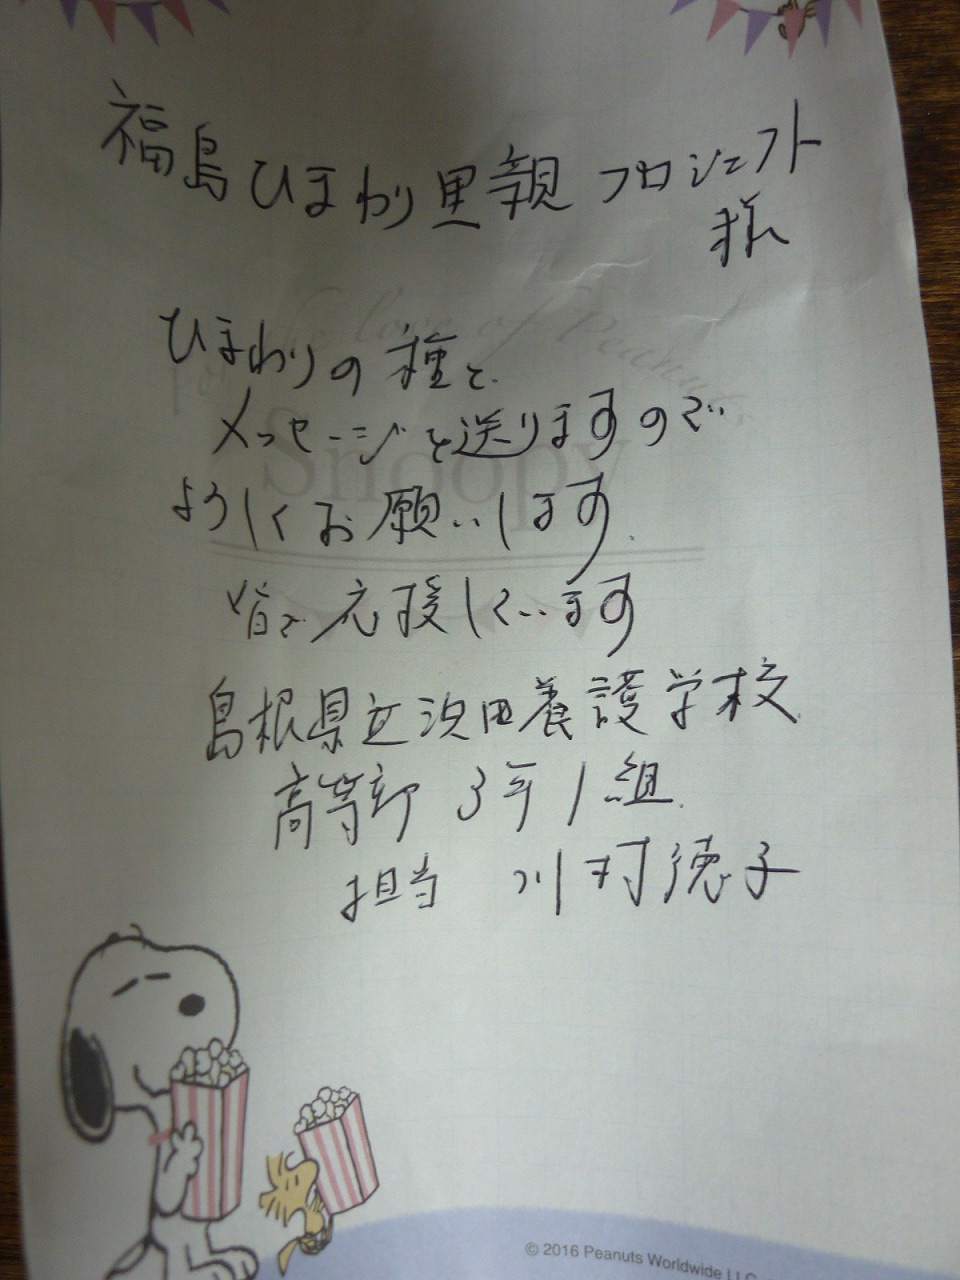 福島ひまわり里親プロジェクト
様
ひまわりの種と
メッセージを送りますので
よろしくお願いします.
皆で応援しています
島根県立浜田養護学校
高等部 3年1組
担当 川村徳子
for the love of Peanuts
Snoopy
© 2016 Peanuts Worldwide LLC